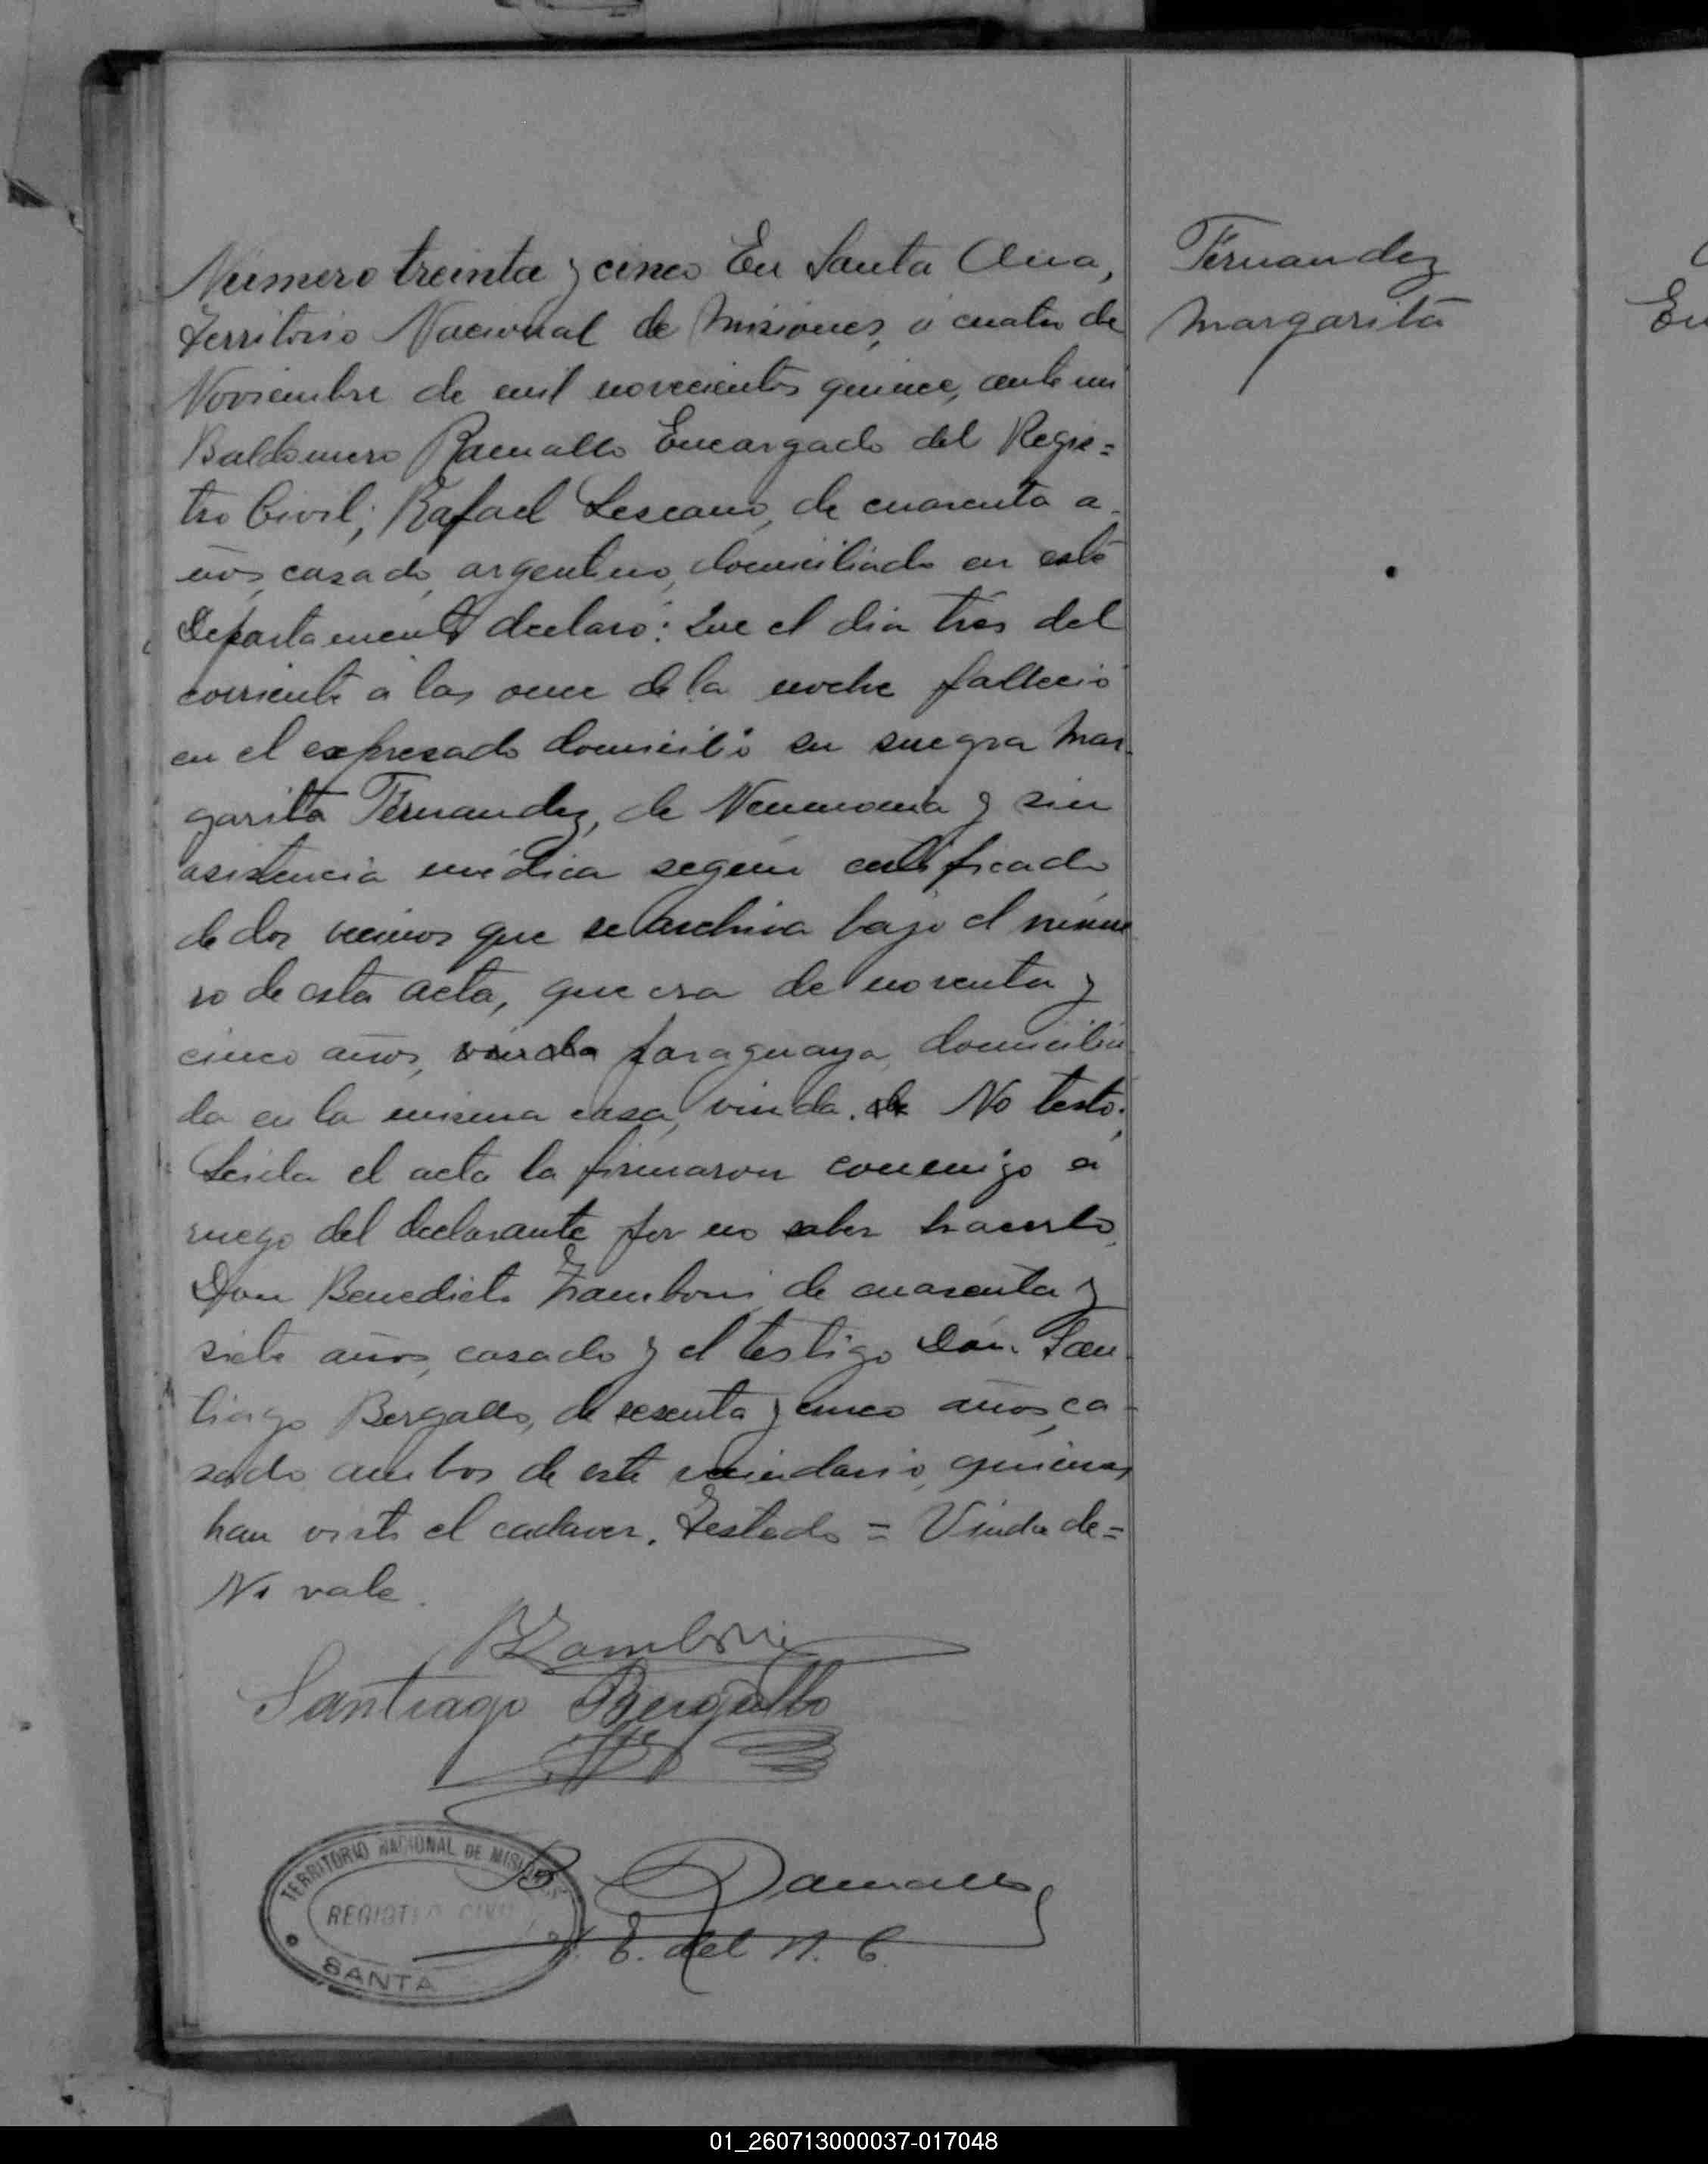 Número treinta y cinco En Santa Ana,
Territorio Nacional de Misiones, á cuatro de
Noviembre de mil novecientos quince, ante mi
Baldomero Ramallo Encargado del Regis=
tro Civil; Rafael Lescano, de cuarenta a-
ños, casado, argentino, domiciliado en este
Departamento declaró: Que el dia tres del
corriente á las once de la noche falleció
en el expresado domicilio su suegra Mar-
garita Fernandez, de Neumonia y sin
asistencia médica segun certificado
de dos vecinos que se archiva bajo el núme
ro de esta acta, que era de noventa y
cinco años, viuda paraguaya, domicilia
da en la misma casa, viuda. de No testó.
Leida el acta la firmaron conmigo á
ruego del declarante por no saber hacerlo,
Don Benedicto Zamboni de cuarenta y
siete años, casado y el testigo Don San-
tiago Bergallo, de sesenta y cinco años, ca-
sado ambos de este vecindario, quienes
han visto el cadaver. Testado = Viuda de=
No vale.
BZamboni
Santiago Bergallo
B Ramallo
E. del R. C.
TERRITORIO NACIONAL DE MISIONES
REGISTRO CIVIL
SANTA
Fernandez
Margarita
En
01_260713000037-017048